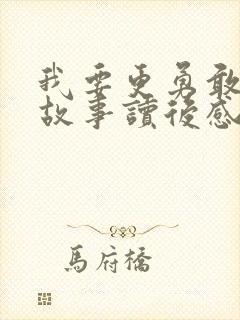 我要更勇敢
故事讀後感
馬府橋